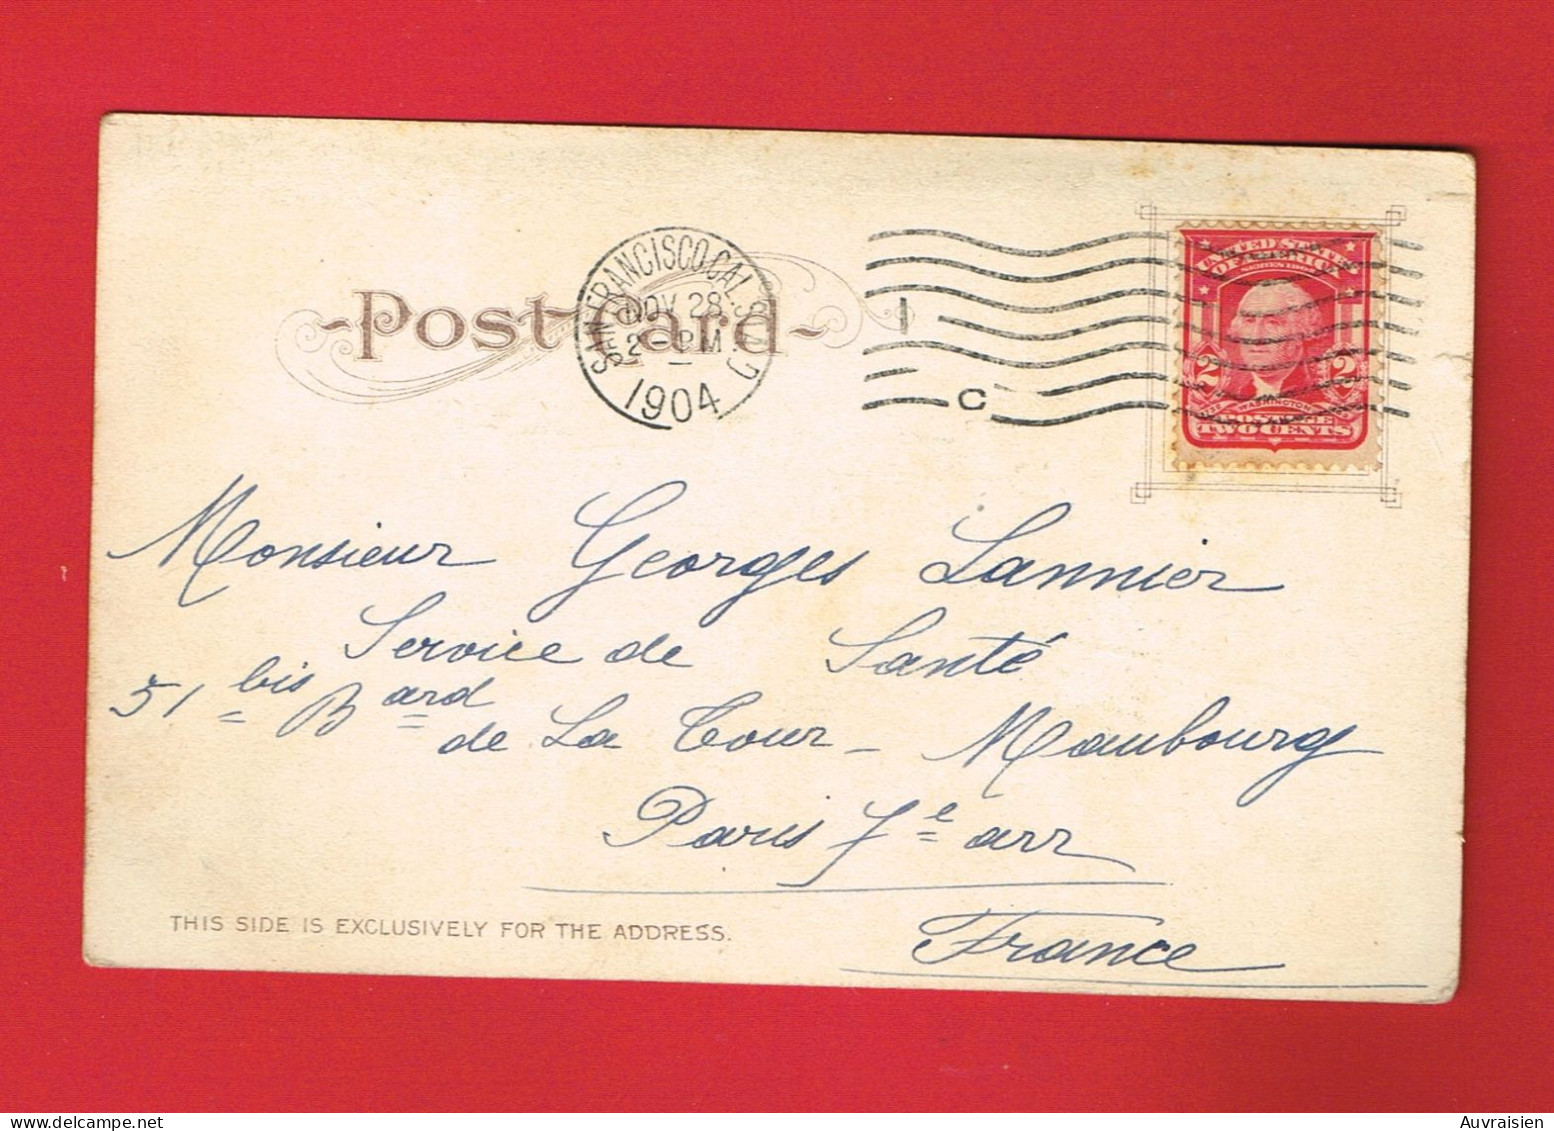 Post Card
SAN FRANCISCO, CAL.
NOV 28
2 - PM
1904
1
C
UNITED STATES
OF AMERICA
SERIES 1902
2 2
WASHINGTON
TWO CENTS
Monsieur Georges Lannier
Service de Santé
51 bis Bard
de La Tour-Maubourg
Paris 7e arr
France
THIS SIDE IS EXCLUSIVELY FOR THE ADDRESS.
Auvraisien